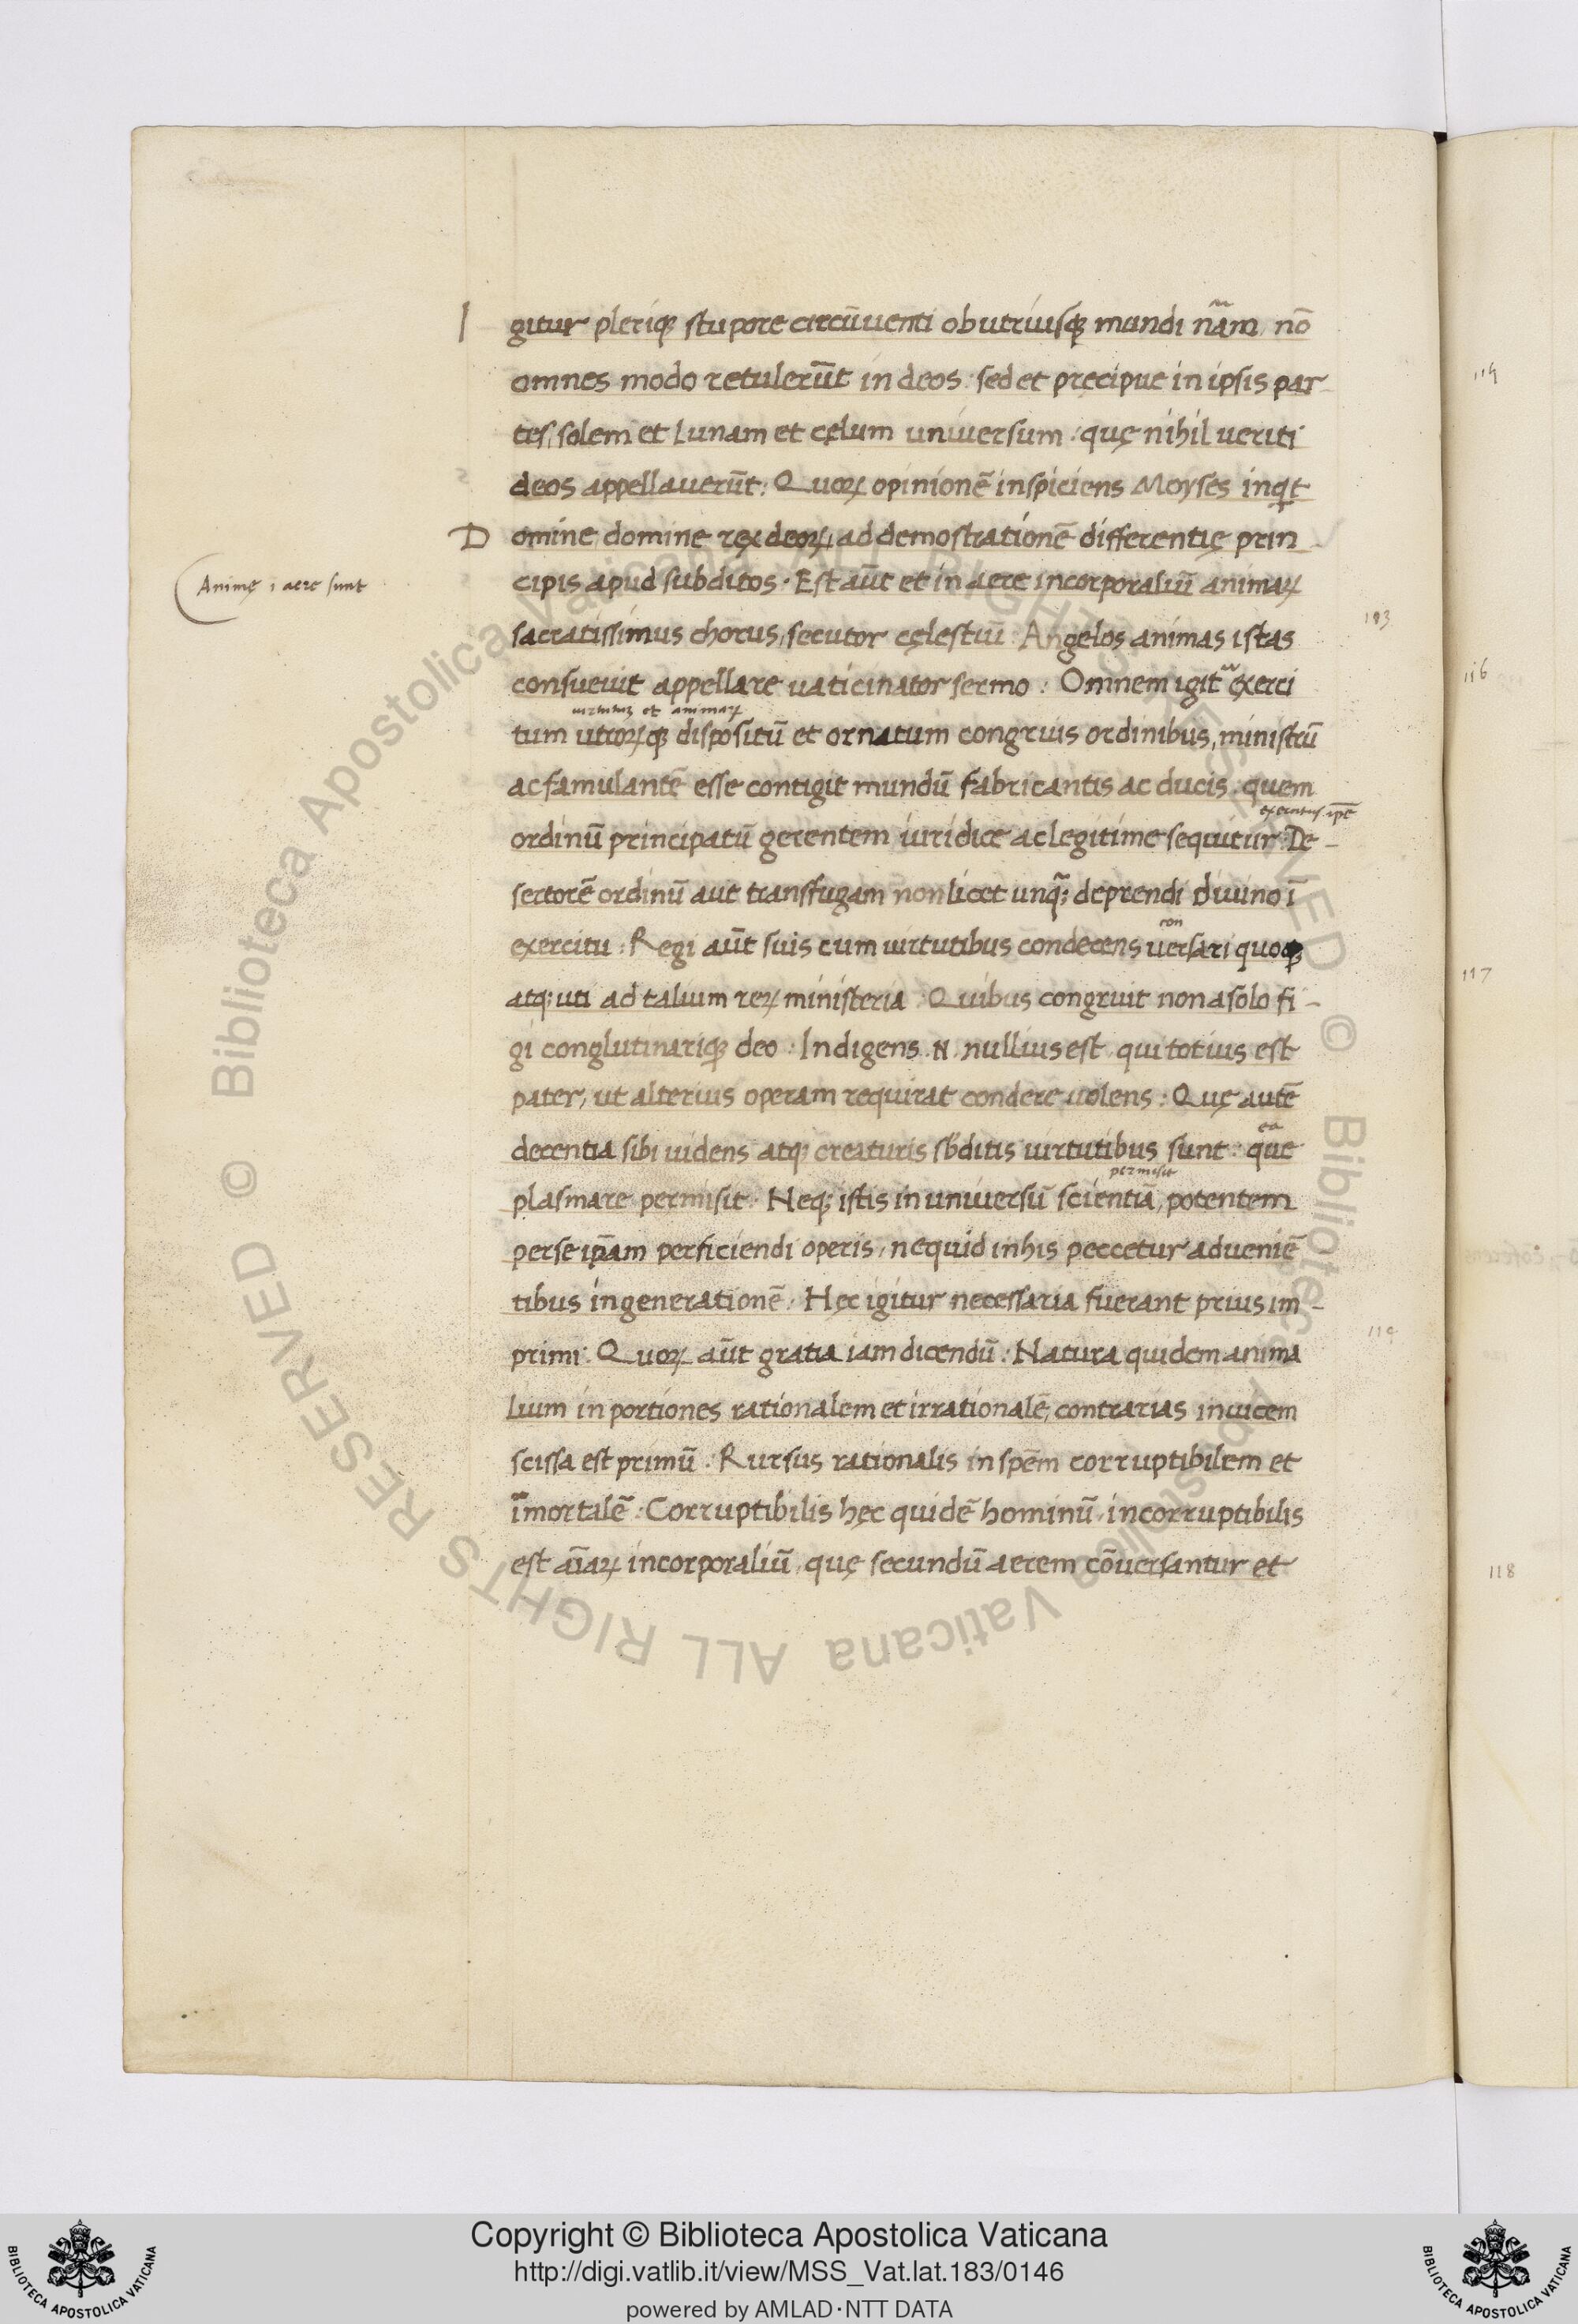 Igitur pleriqꝫ stupore circũuenti ob utriusqꝫ mundi nãm, nõ
omnes modo retulerũt in deos: sed et pręcipue in ipsis par-
tes, solem et Lunam et cęlum uniuersum: quę nihil ueriti
deos appellauerũt: Quoꝝ opinionẽ inspiciens Moyses inqt
Domine domine rex deoꝝ, ad demostrationẽ differentię prin-
Animę i aere sunt
cipis apud subditos. Est aũt et in aere incorporaliũ animaꝝ
sacratissimus chorus, secutor cęlestiũ: Angelos animas istas
consueuit appellare uaticinator sermo: Omnem igit̃ exerci
uirtutuꝫ et animaꝝ
tum utroꝝqꝫ dispositũ et ornatum congruis ordinibus, ministrũ
ac famulantẽ esse contigit mundũ fabricantis ac ducis: quem
exercitus ipẽ
ordinũ principatũ gerentem iuridice ac legitime sequitur: De-
sertorẽ ordinũ aut transfugam non licet unq̃; deprendi diuino ĩ
con
exercitu: Regi aũt suis cum uirtutibus condecens uersari quoqꝫ
atq; uti ad talium reꝝ ministeria: Quibus congruit non a solo fi-
gi conglutinariqꝫ deo: Indigens .N. nullius est, qui totius est
pater, ut alterius operam requirat condere uolens: Quę autẽ
ea
decentia sibi uidens atqꝫ creaturis sb̃ditis uirtutibus sunt: que
permisit
plasmare permisit. Neq; istis in uniuersũ scientiã, potentem
per se ip̃am perficiendi operis, ne quid in his peccetur adueniẽ
tibus in generationẽ. Hęc igitur necessaria fuerant prius im-
primi: Quoꝝ aũt gratia iam dicendũ: Natura quidem anima
lium in portiones rationalem et irrationalẽ, contrarias inuicem
scissa est primũ: Rursus rationalis in spẽm corruptibilem et
ĩmortalẽ: Corruptibilis hęc quidẽ hominũ, incorruptibilis
est aĩaꝝ incorporaliũ, quę secundũ aerem cõuersantur et
114
183
116
117
119
118
© Biblioteca Apostolica Vaticana ALL RIGHTS RESERVED
© Biblioteca Apostolica Vaticana ALL RIGHTS RESERVED
Copyright © Biblioteca Apostolica Vaticana
http://digi.vatlib.it/view/MSS_Vat.lat.183/0146
powered by AMLAD·NTT DATA
BIBLIOTECA APOSTOLICA VATICANA
BIBLIOTECA APOSTOLICA VATICANA